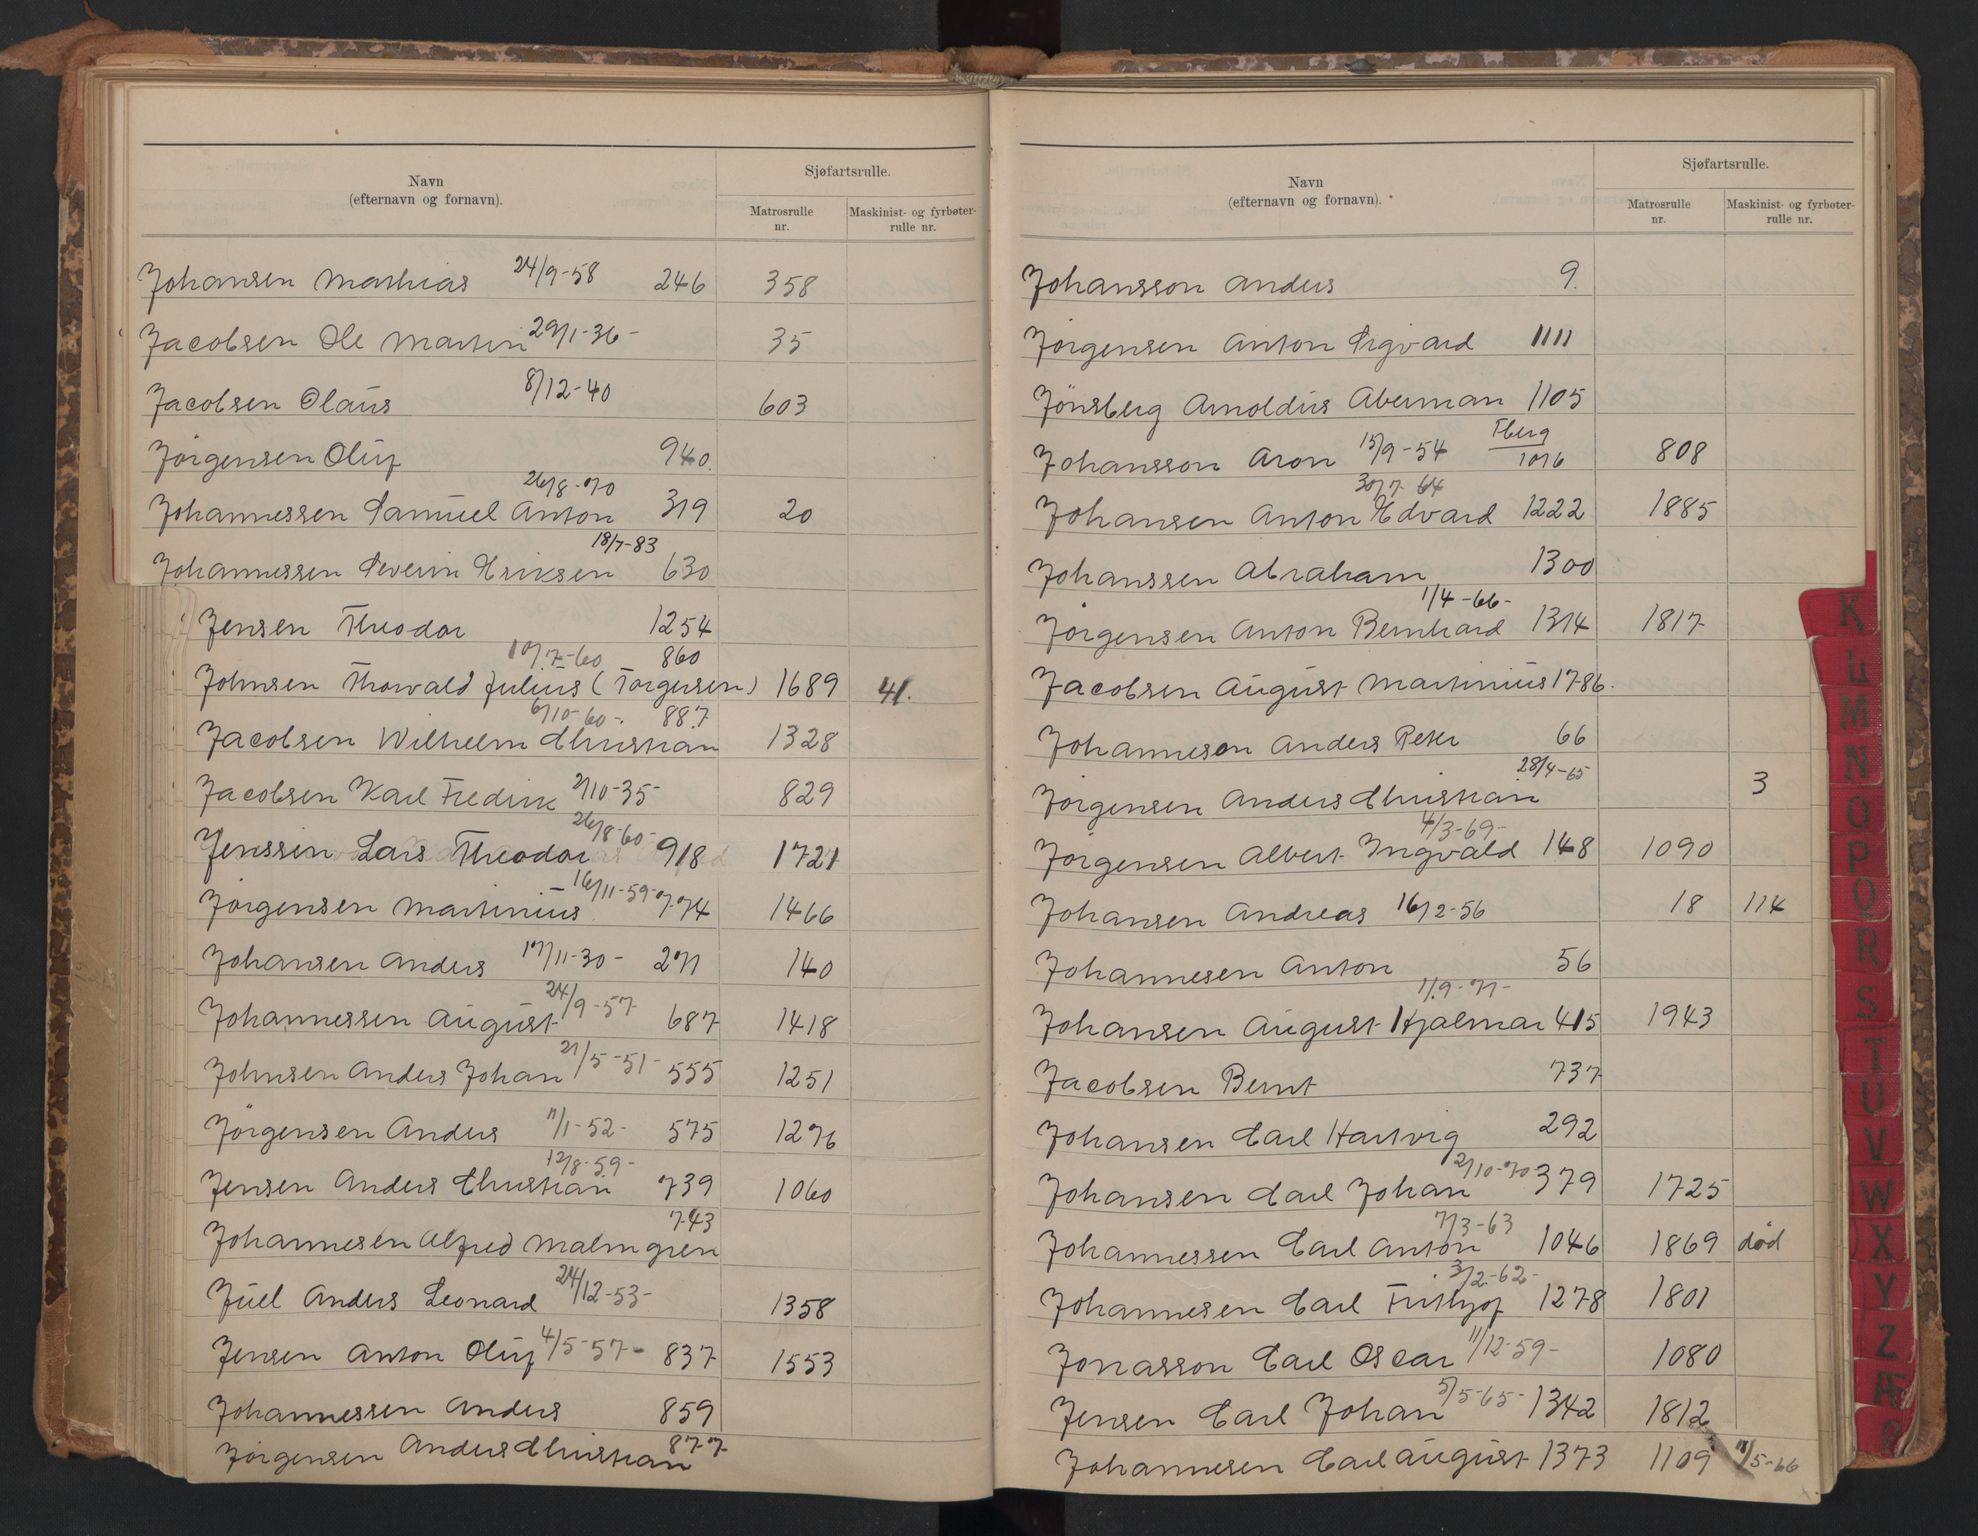 Navn
(efternavn og fornavn).
Sjøfartsrulle.
Matrosrulle nr.
Maskinist- og fyrbøter-rulle nr.
Johansen Mathias 24/9-58 246 358
Jacobsen Ole Martin 29/1-36- 35
Jacobsen Olaus 8/12-40 603
Jørgensen Oluf 940.
Johannessen Samuel Anton 26/8-70 319 20
Johannessen Severin Eriksen 18/7-83 630
Jensen Theodor 1254
Johnsen Thorvald Julius (Torgersen) 10/7-60 860 1689 41.
Jacobsen Wilhelm Christian 6/10-60-. 887 1328
Jacobsen Karl Fredrik 2/10-35- 829
Jenssen Lars Theodor 26/8-60- 918 1721
Jørgensen Martinius 16/11-59- 774 1466
Johansen Anders 17/11-30- 271 140
Johannessen August 24/9-57- 687 1418
Johnsen Anders Johan 21/5-51- 555 1251
Jørgensen Anders 11/1-52- 575 1276
Jensen Anders Christian 12/8-59- 739 1060
Johannesen Alfred Malmgren 743
Juel Anders Leonard 24/12-53- 1358
Jensen Anton Oluf 4/5-57- 837 1553
Johannessen Anders 859
Jørgensen Anders Christian 877
Navn
(efternavn og fornavn).
Sjøfartsrulle.
Matrosrulle nr.
Maskinist- og fyrbøter-rulle nr.
Johansson Anders 9.
Jørgensen Anton Sigvard 1111
Jönsberg Arnoldus Aberman 1105
Johansson Aron 15/9-54 Tberg 1076 808
Johansen Anton Edvard 30/7-64 1222 1885
Johanssen Abraham 1300
Jørgensen Anton Bernhard 1/4-66- 1314 1817
Jacobsen August Martinius 1786.
Johanneson Anders Peter 66
Jørgensen Anders Christian 28/4-65 3
Jørgensen Albert Ingvald 4/3-69- 148 1090
Johansen Andreas 16/2-56 18 114
Johannesen Anton 56
Johansen August Hjalmar 11/9-71- 415 1943
Jacobsen Bernt 737
Johansen Carl Hartvig 292
Johansen Carl Johan 2/10-70 379 1725
Johannessen Carl Anton 7/3-63 1046 1869 død
Johannesen Carl Frithjof 3/2-62- 1278 1801
Jonasson Carl Oscar 11/12-59- 1080
Jensen Carl Johan 5/5-65- 1342 1812
Johannesen Carl August 1373 1109 11/5-66
K
L
M
N
O
P
Q
R
S
T
U
V
W
X
Y
Z
Æ
Ø